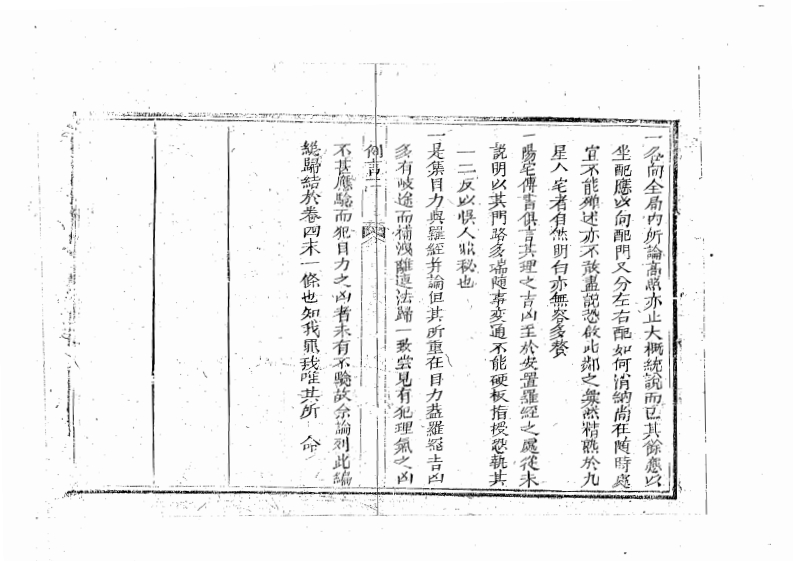 一各向全局內所論高照亦止大概統說而已其餘應以
坐配應以向配門又分左右配如何消納尚在隨時處
宜不能殫述亦不敢盡說恐啟此鄰之釁然精熟於九
星人宅者自然明白亦無容多贅
一陽宅傳書俱言其理之吉凶至於安置羅經之處從未
說明以其門路多端隨事変通不能硬板指授恐執其
一二反以悞人非秘也
一是集目力與羅經并論但其所重在目力蓋羅經吉凶
多有岐途而補洩離連法歸一致尝見有犯理氣之凶
例言二
不甚應驗而犯目力之凶者未有不驗故余論列此編
総歸結於卷四末一條也知我罪我唯其所命